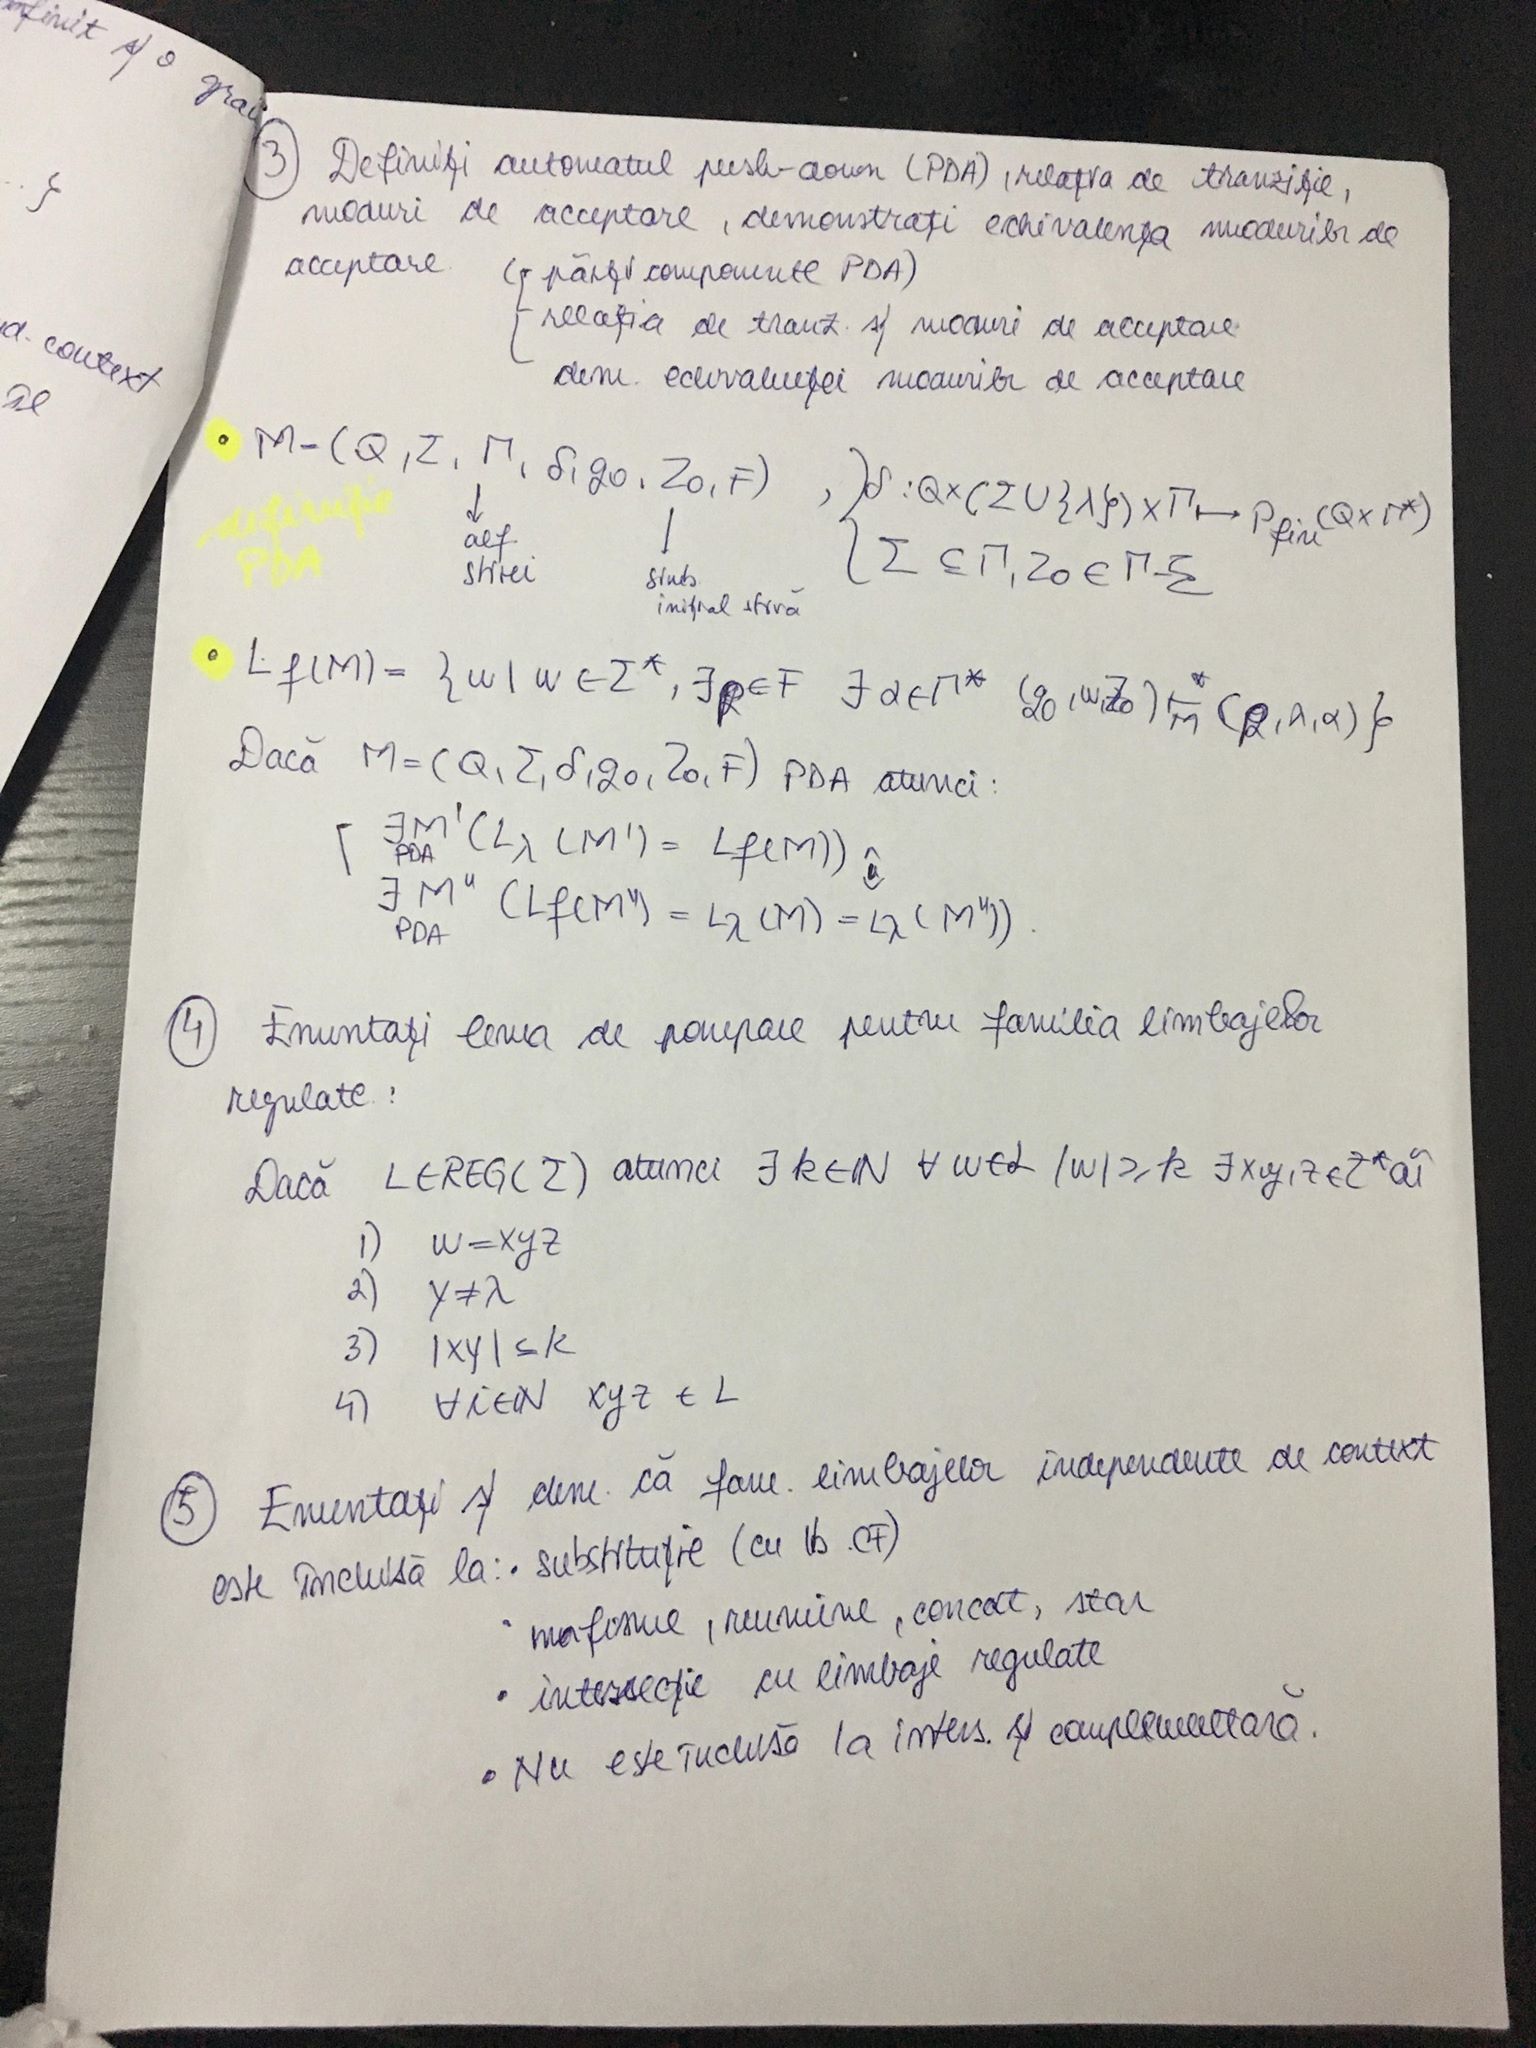 nfinit și o gra
... }
d. context
③ Definiți automatul push-down (PDA), relația de tranziție,
moduri de acceptare, demonstrați echivalența modurilor de
acceptare. (părți componente PDA)
relația de tranz. și moduri de acceptare
dem. echivalenței modurilor de acceptare
• M=(Q, Σ, Γ, δ, q0, Z0, F) , } δ: Q×(Σ∪{λ})×Γ ↦ Pfin(Q×Γ*)
definiție PDA
alf. stivei
simb. inițial stivă
Σ ⊆ Γ, Z0 ∈ Γ-Σ
• Lf(M)= {w | w∈Σ*, ∃p∈F ∃α∈Γ* (q0, w, Z0) ⊢*M (p, λ, α)}
Dacă M=(Q, Σ, δ, q0, Z0, F) PDA atunci:
∃M' (Lλ(M') = Lf(M)) și
PDA
∃M" (Lf(M") = Lλ(M) = Lλ(M")).
PDA
④ Enuntați lema de pompare pentru familia limbajelor
regulate:
Dacă L∈REG(Σ) atunci ∃k∈ℕ ∀w∈L |w|≥k ∃x,y,z∈Σ* aî
1) w=xyz
2) y≠λ
3) |xy|≤k
4) ∀i∈ℕ xyz ∈ L
⑤ Enuntați și dem. că fam. limbajelor independente de context
este închisă la: • substituție (cu lb. CF)
• mofisme, reuniune, concat, star
• intersecție cu limbaje regulate
• Nu este închisă la inters. și complementară.